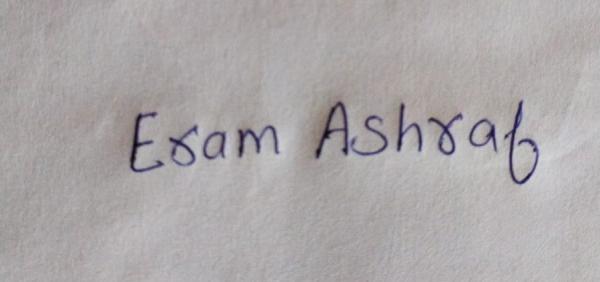 Eram Ashraf